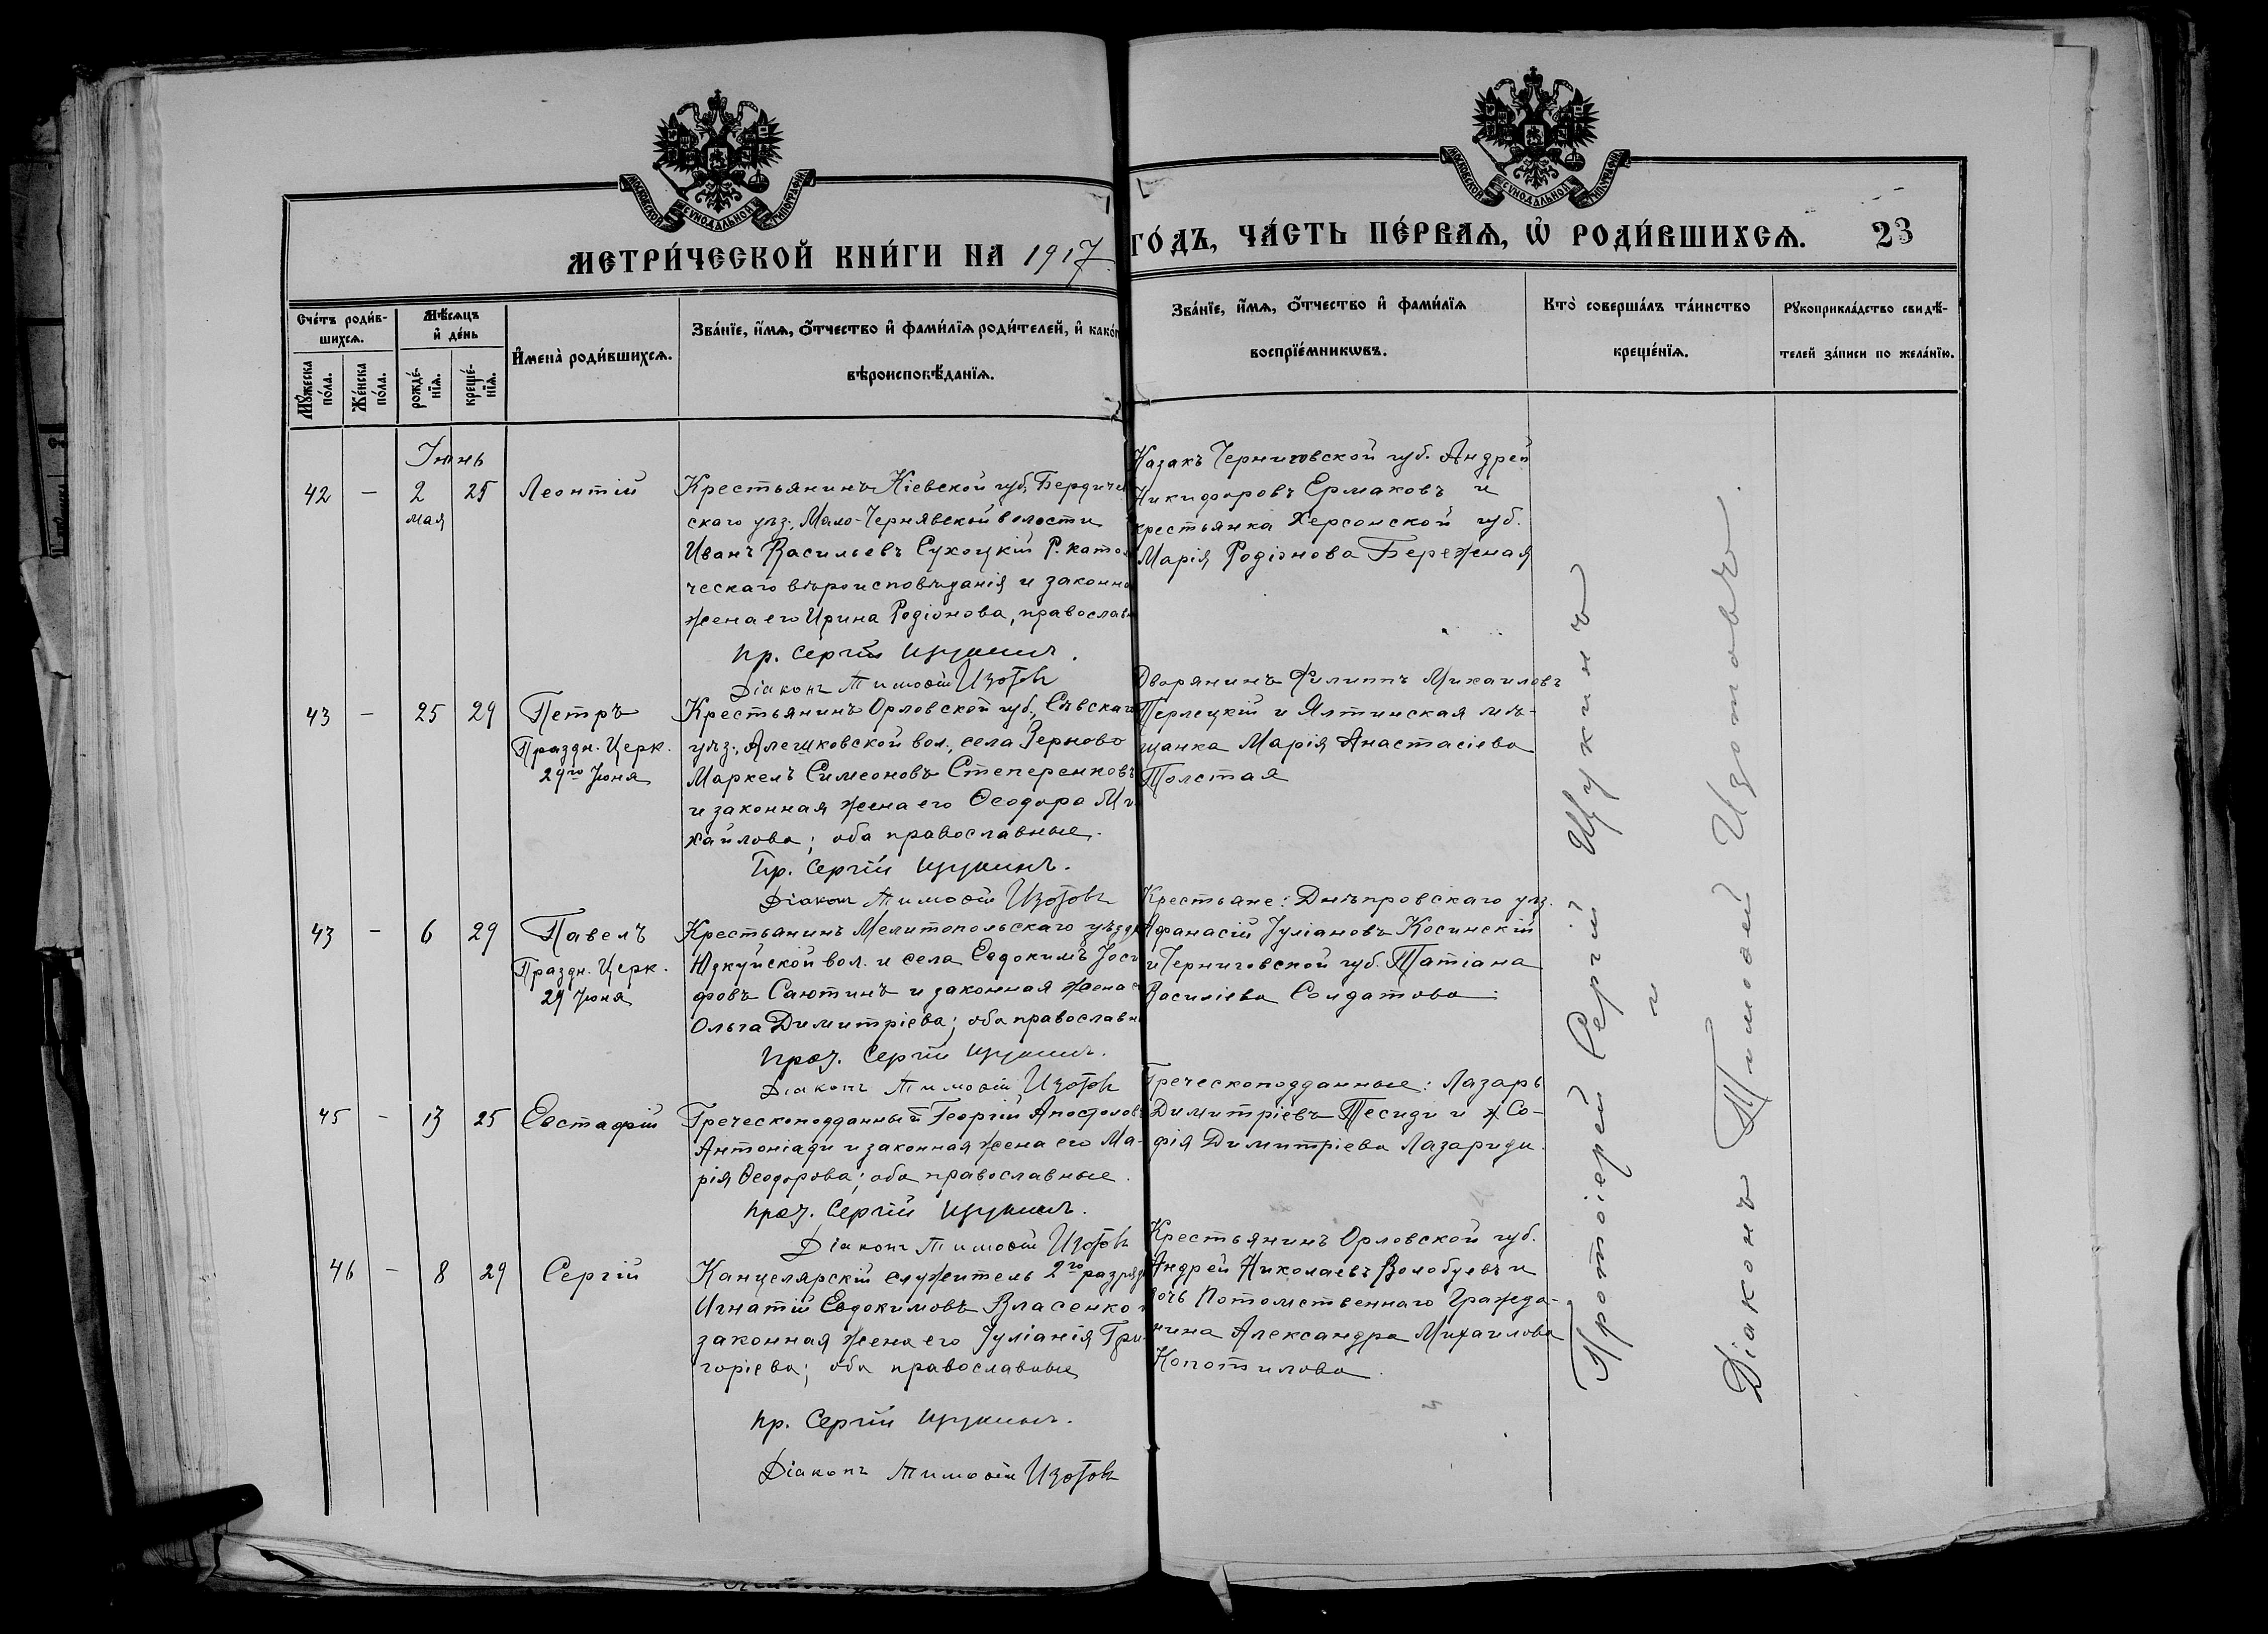 МОСКОВСКОЙ СѴНОДАЛЬНОЙ ТИПОГРАФІИ
МОСКОВСКОЙ СѴНОДАЛЬНОЙ ТИПОГРАФІИ
МЕТРИ́ЧЕСКОЙ КНИ́ГИ НА 1917
ГО́ДЪ, ЧА́СТЬ ПЕ́РВАѦ, Ѡ҆ РОДИ́ВШИХСѦ. 23
Сче́тъ роди́в-
шихсѧ.
Мѹ́жеска
по́ла.
Же́нска
по́ла.
Мѣ́сѧцъ
и҆ де́нь
рожде́-
нїѧ.
креще́-
нїѧ.
И҆мена̀ роди́вшихсѧ.
Зва́нїе, и҆́мѧ, ѻ҆́тчество и҆ фами́лїѧ роди́телей, и҆ како́г
вѣроисповѣ́данїѧ.
Зва́нїе, и҆́мѧ, ѻ҆́тчество и҆ фами́лїѧ
воспрїе́мникѡвъ.
Кто̀ соверша́лъ та́инство
креще́нїѧ.
Рѹкоприкла́дство свидѣ́-
телей за́писи по жела́нїю.
Іюнь
42 – 2 25 Леонтій
мая
Крестьянинъ Кіевской губ, Бердичев
скаго уѣз., Мало-Чернявской волости
Иванъ Васильевъ Сухоцкій Р. катол
ческаго вѣроисповѣданія и законна
жена его Ирина Родіонова, православн
пр. Сергій Щукинъ.
Діаконъ Тимоѳей Изотовъ
Казакъ Черниговской губ. Андрей
Никифоровъ Ермаковъ и
крестьянка Херсонской губ.
Марія Родіонова Бережная
43 – 25 29 Петръ
Праздн. Церк.
29го Іюня
Крестьянинъ Орловской губ., Сѣвскаго
уѣз., Алешковской вол., села Зерново
Маркелъ Симеоновъ Степеренковъ
и законная жена его Ѳеодора Ми
хайлова; оба православные.
Пр. Сергій Щукинъ.
Діаконъ Тимоѳей Изотовъ
Дворянинъ Филиппъ Михаиловъ
Перлецкій и Ялтинская мѣ-
щанка Марія Анастасіева
Толстая
43 – 6 29 Павелъ
Праздн. Церк.
29 Іюня
Крестьянинъ Мелитопольскаго уѣзда
Юзкуйской вол. и села Евдокимъ Іоси
фовъ Саютинъ и законная жена е
Ольга Димитріева; оба православн
Прот. Сергій Щукинъ.
Діаконъ Тимоѳей Изотовъ
Крестьяне: Днѣпровскаго уѣз.
Афанасій Іуліановъ Косинскій
и Черниговской губ. Татіана
Василіева Солдатова.
45 – 13 25 Евстафій
Греческоподданный Георгій Апостоловъ
Антоніади и законная жена его Ма-
рія Ѳеодорова; оба православные.
прот. Сергій Щукинъ.
Діаконъ Тимоѳей Изотовъ
Греческоподданные: Лазарь
Димитріевъ Тесиди и ж Со-
фія Димитріева Лазариди.
46 – 8 29 Сергій
Канцелярскій служитель 2го разряда
Игнатій Евдокимовъ Власенко и
законная жена его Іуліанія Гри-
горіева; оба православные
пр. Сергій Щукинъ.
Діаконъ Тимоѳей Изотовъ
Крестьянинъ Орловской губ.
Андрей Николаевъ Волобуевъ и
дочь Потомственнаго Гражда-
нина Александра Михаилова
Копотилова.
Протоіерей Сергій Щукинъ
и
Діаконъ Тимоѳей Изотовъ.